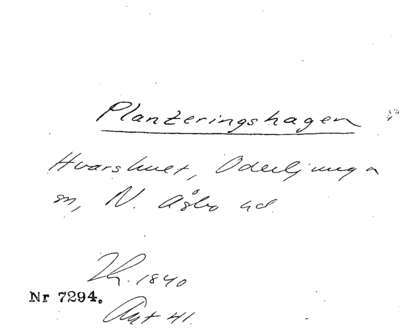 Planteringshagen
Hvarshult, Oderljunga
sn, N. Åsbo hd.
Th. 1840
Nr 7294.
Akt 41.